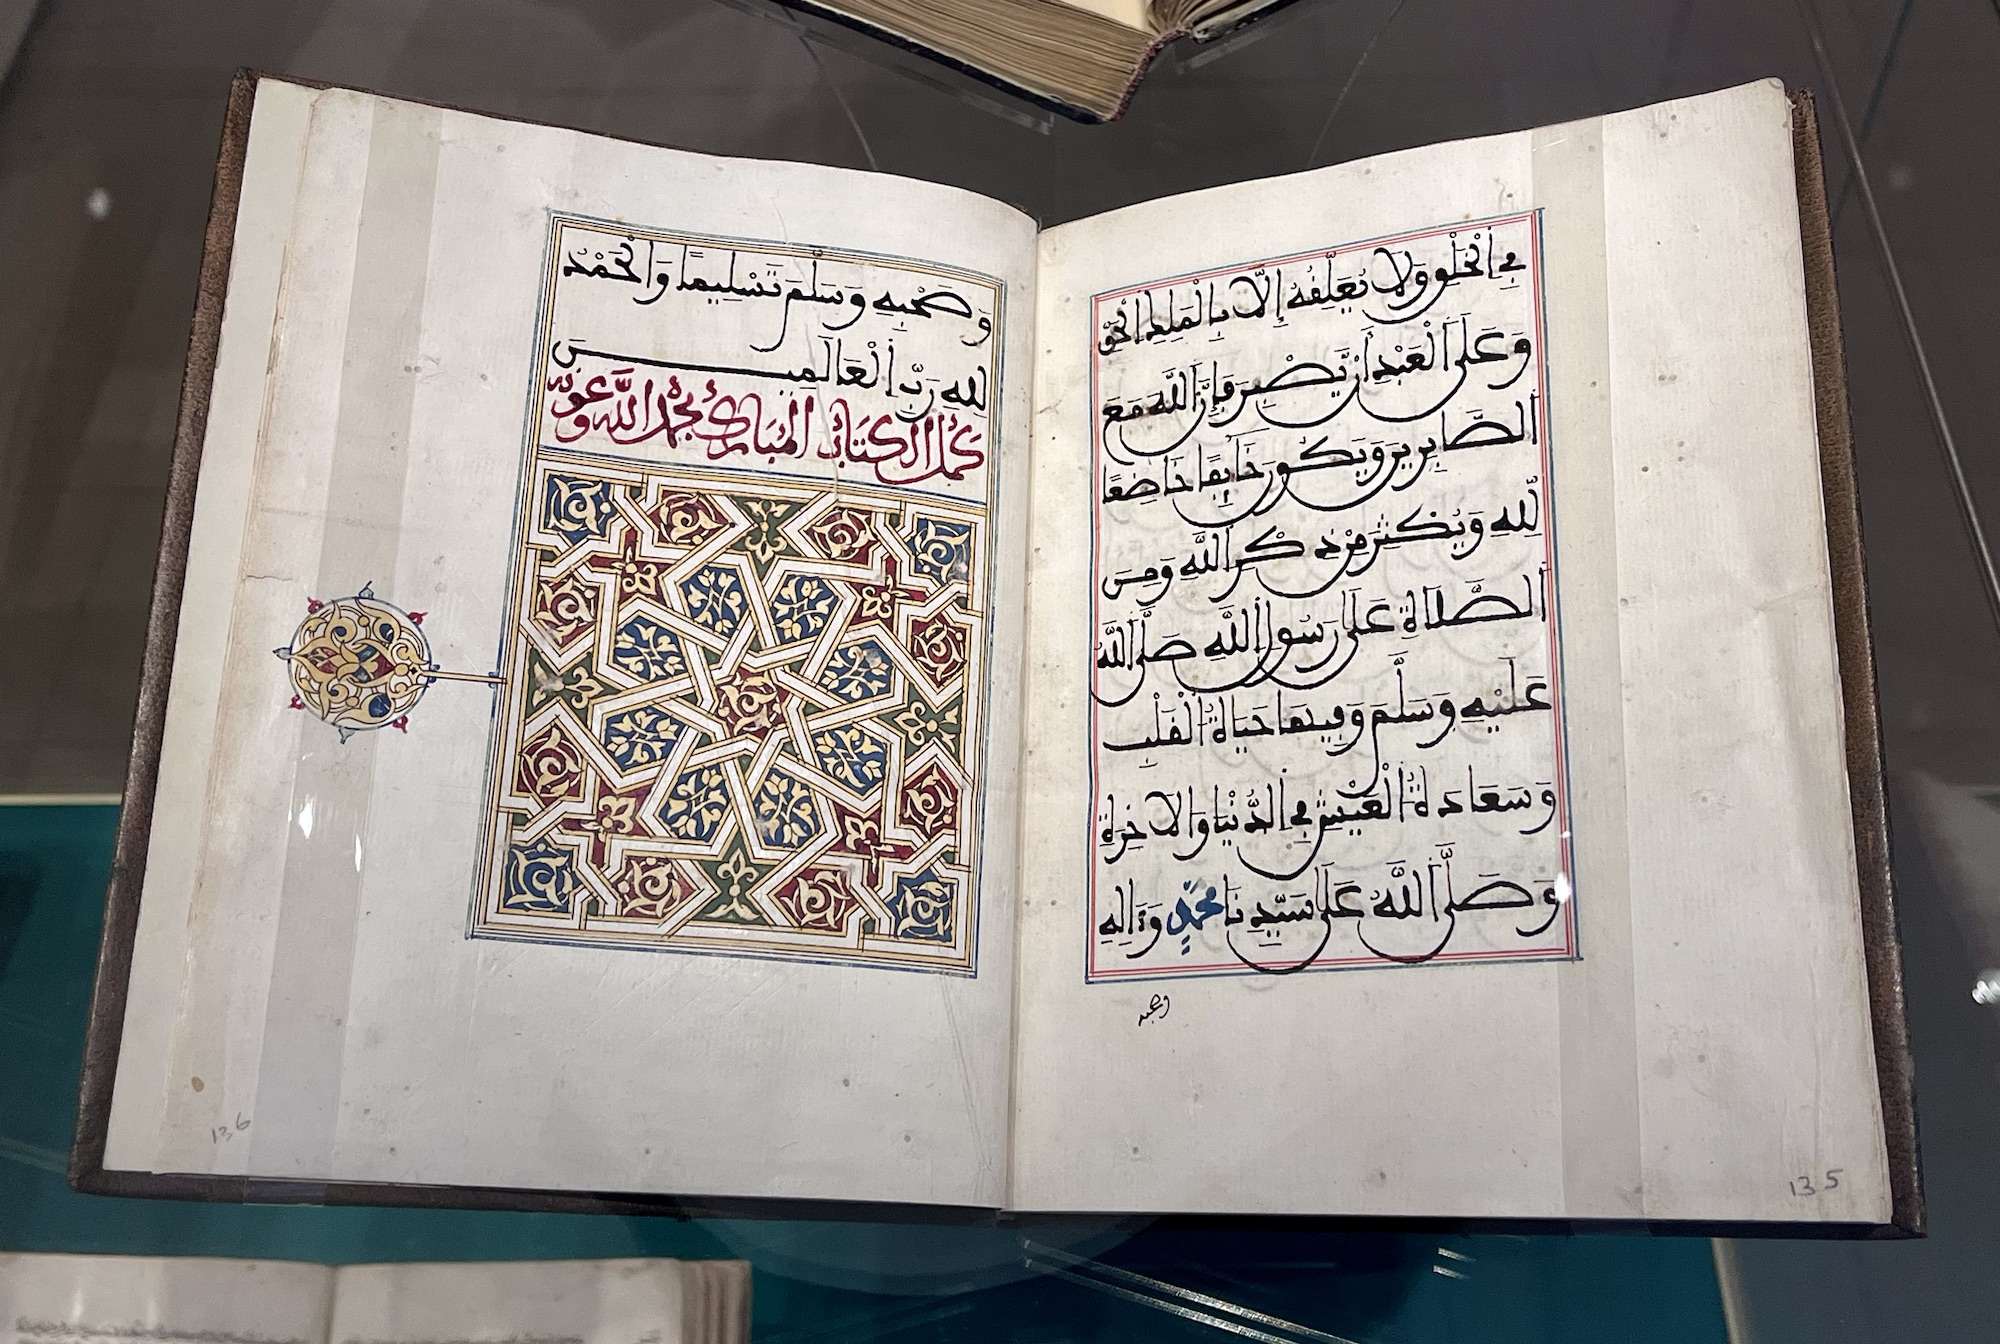 في الخلق ولا يعلقه إلا بالملك الحق
وَعَلَى الْعَبْدِ أَن يَّصْبِرَ فَإِنَّ اللَّهَ مَعَ
الصَّابِرِين وَيَكُون خَائِفًا خَاضِعًا
لِلهِ وَيُكْثِر مِن ذِكْرِ اللَّهِ وَمِنَ
الصَّلَاةِ عَلَى رَسُولِ اللَّهِ صَلَّى اللَّهُ
عَلَيْهِ وَسَلَّمَ وَفِيهَا حَيَاةُ الْقَلْبِ
وَسَعَادَةُ الْعَيْشِ فِي الدُّنْيَا وَالآخِرَةِ
وَصَلَّى اللَّهُ عَلَى سَيِّدِنَا مُحَمَّدٍ وَءَالِهِ
وصحبه
135
وَصَحْبِهِ وَسَلَّمَ تَسْلِيمًا وَالْحَمْدُ
لِلهِ رَبِّ الْعَالَمِينَ
كمل الكتاب المبارك بحمد الله وعونه
136